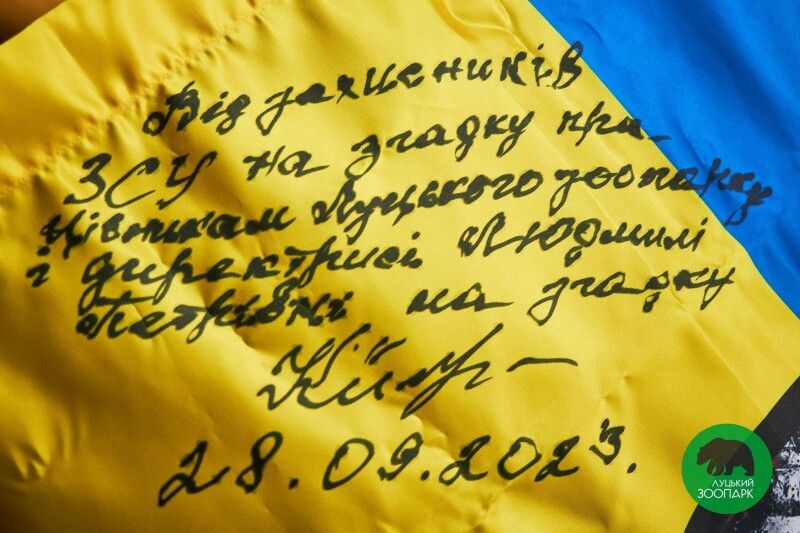 Від захисників
ЗСУ на згадку пра-
цівникам Луцького зоопарку
і директрисі Людмилі
Петрівні на згадку
28.09.2023.
ЛУЦЬКИЙ
ЗООПАРК